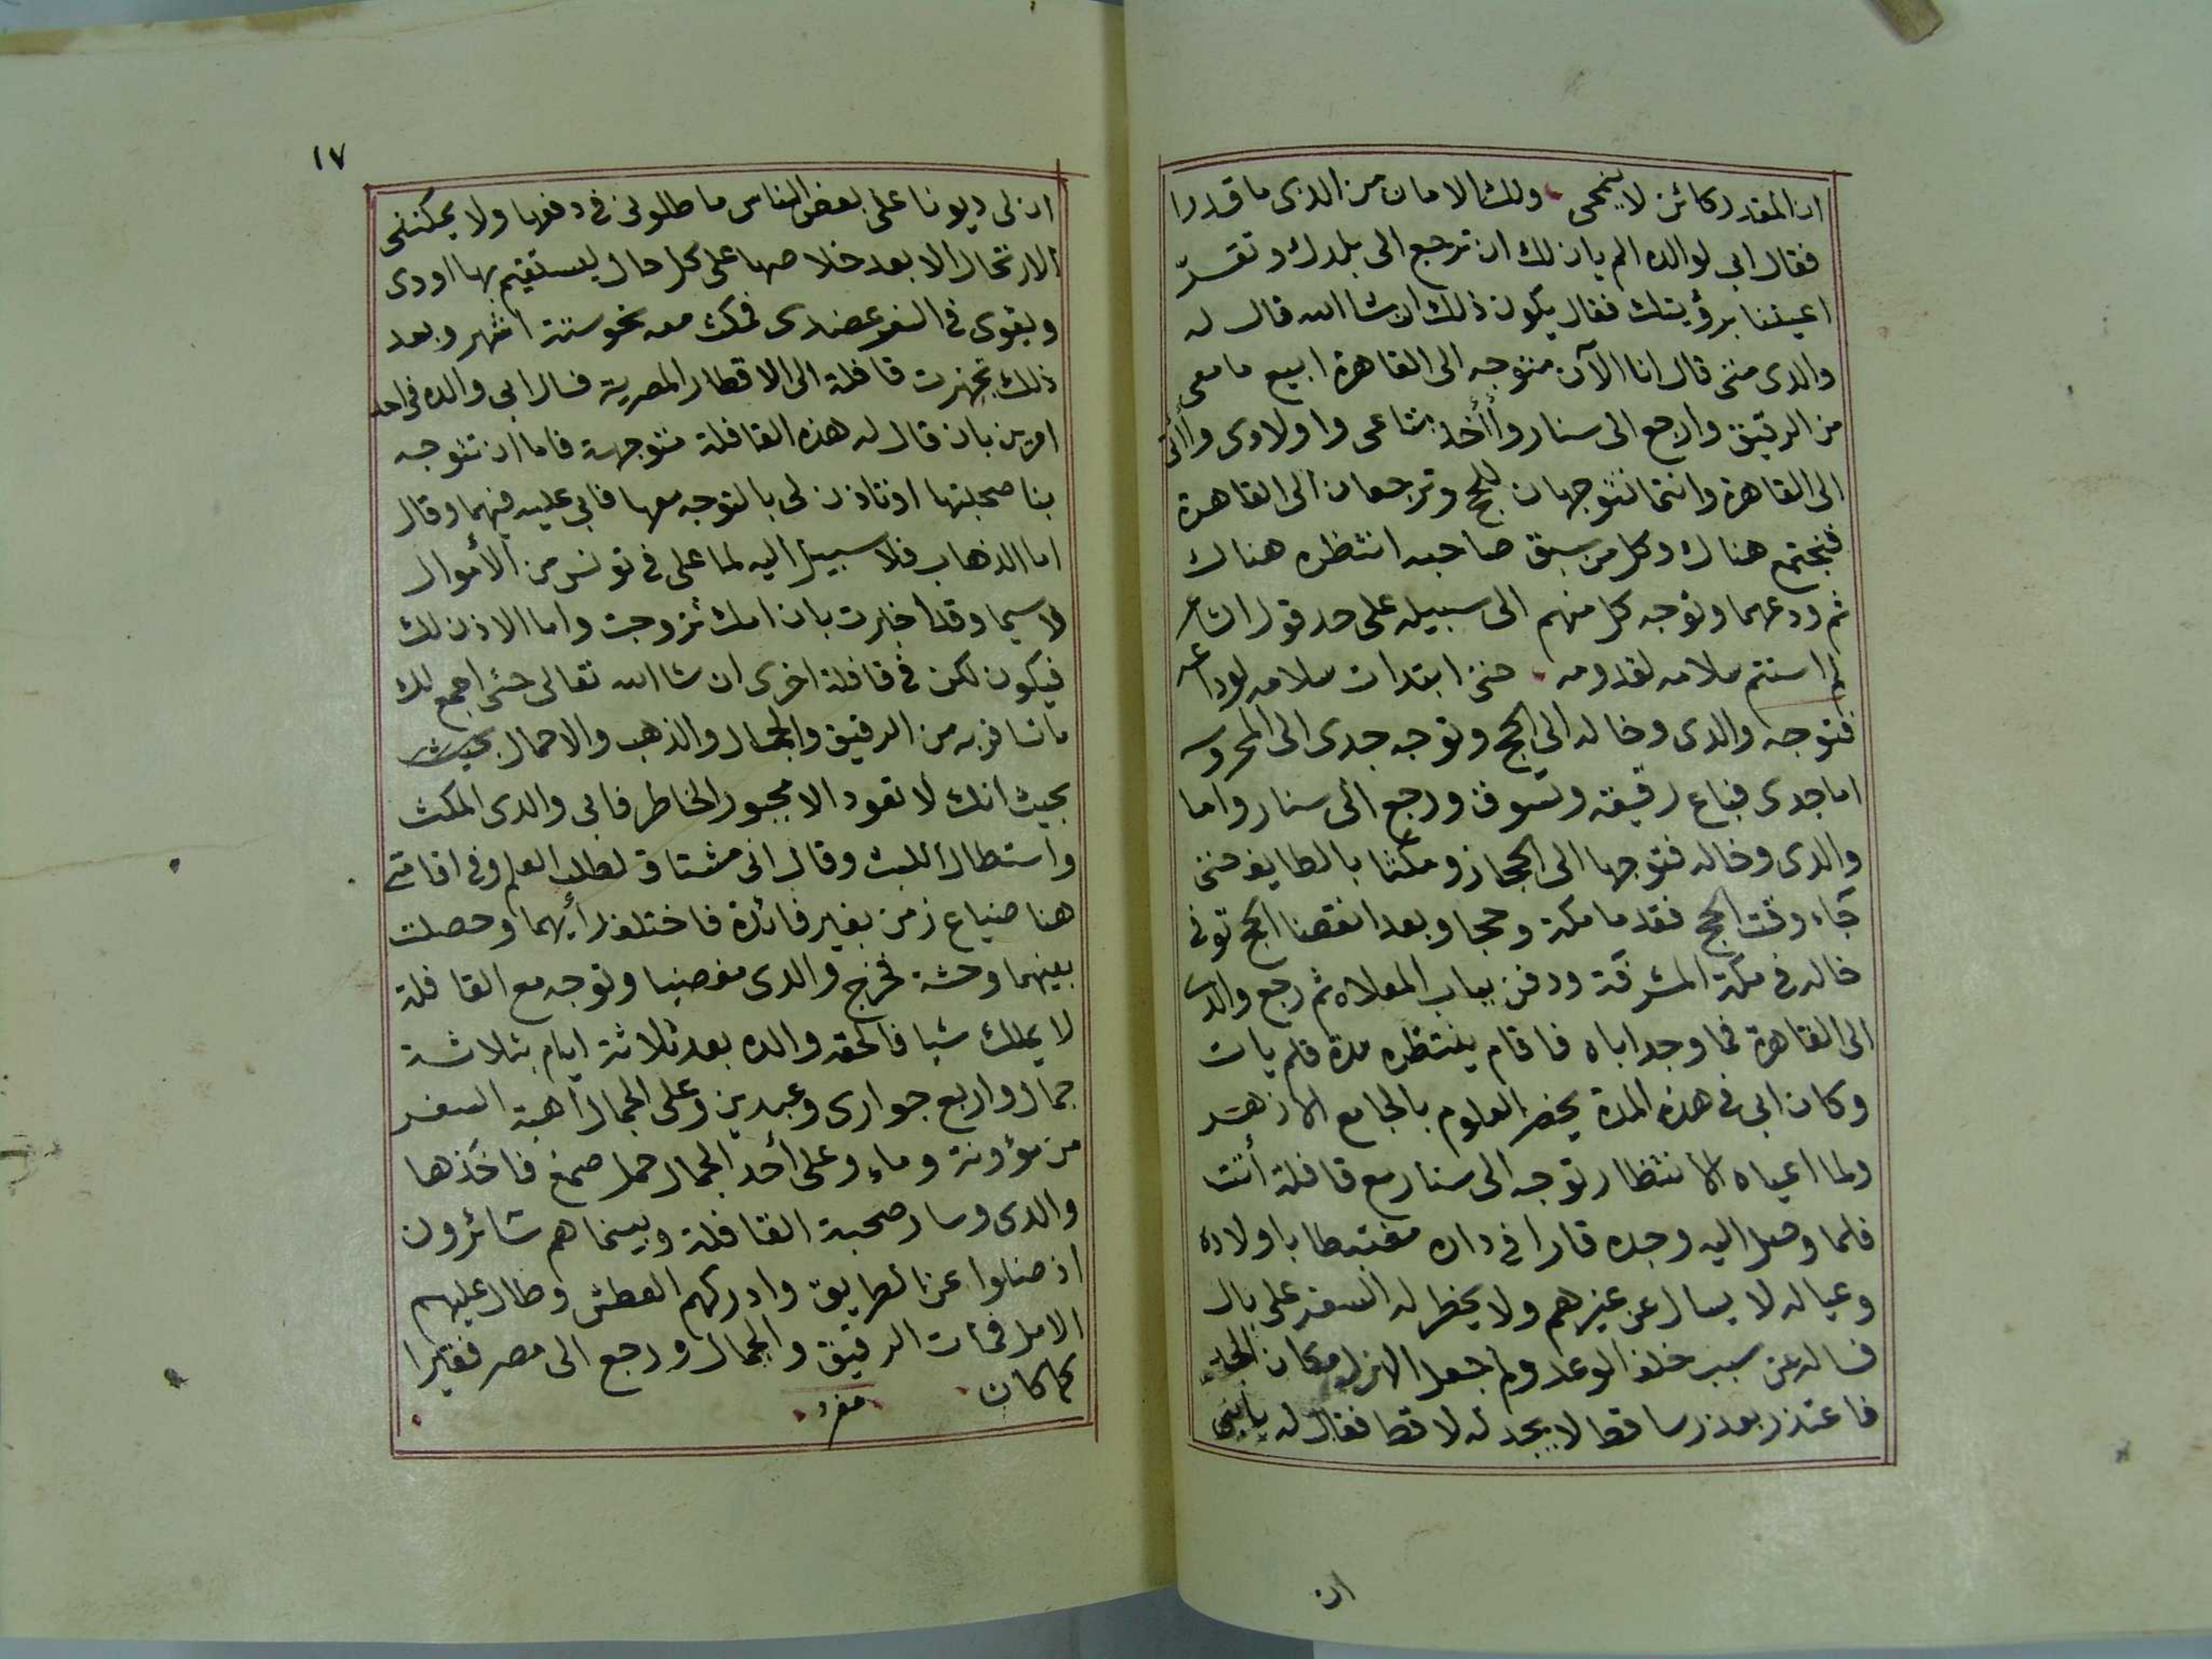 ان المقدر كائن لا ينمحى ولك الامان من الذى ما قدرا
فقال ابى لوالده الم يان لك ان ترجع الى بلدك وتقرّ
اعيننا برؤيتك فقال يكون ذلك ان شا الله قال له
والدى متى قال انا الآن متوجه الى القاهرة ابيع ما معى
من الرقيق وارجع الى سنار وأأخذ متاعى واولادى وأاتى
الى القاهرة وانتما تتوجهان للحج وترجعان الى القاهرة
فنجتمع هناك وكل من سبق صاحبه انتظره هناك
ثم ودعهما وتوجه كل منهم الى سبيله على حد قول الشاعر
لم استتم سلامه لقدومه حتى ابتدات سلامه لوداعه
فتوجه والدى وخاله الى الحج وتوجه جدى الى المحروسه
اما جدى فباع رقيقه وتسوق ورجع الى سنار واما
والدى وخاله فتوجها الى الحجاز ومكثا بالطايف حتى
جاء وقت الحج فقدما مكة وحجا وبعد انقضا الحج توفى
خاله فى مكة المشرفة ودفن بباب المعلاه ثم رجع والدى
الى القاهرة فما وجد اباه فاقام ينتظره مدة فلم يات
وكان ابى فى هذه المدة يحضر العلوم بالجامع الازهر
ولما اعياه الانتظار توجه الى سنار مع قافلة أتت
فلما وصل اليه وجده قارا فى داره مغتبطا باولاده
وعياله لا يسال عن غيرهم ولا يخطر له السفر على بال
فساله عن سبب خلف الوعد ولم جعل الهزل مكان الجد
فاعتذر بعذر ساقط لا يجد له لاقطا فقال له يا بنى
ان
١٧
ان لى ديونا على بعض الناس ماطلونى فى دفعها ولا يمكننى
الارتحال الا بعد خلاصها على كل حال ليستقيم بها اودى
ويقوى فى السفر عضدى فمكث معه نحو ستة اشهر وبعد
ذلك تجهزت قافلة الى الاقطار المصرية فسال ابى والده فى احد
امرين بان قال له هذه القافلة متوجهة فاما ان تتوجه
بنا صحبتها او تاذن لى بالتوجه معها فابى عليه فيهما وقال
اما الذهاب فلا سبيل اليه لما على فى تونس من الأموال
لا سيما وقد اخبرت بان امك تزوجت واما الاذن لك
فيكون لكن فى قافلة اخرى ان شا الله تعالى حتى اجمع لك
ما تسافر به من الرقيق والجمال والذهب والاحمال بحيث
بحيث انك لا تعود الا مجبور الخاطر فابى والدى المكث
واستطال اللبث وقال انى مشتاق لطلب العلم وفى اقامتى
هنا ضياع زمن بغير فائدة فاختلف رأيهما وحصلت
بينهما وحشة فخرج والدى مغضبا وتوجه مع القافلة
لا يملك شيا فالحقه والده بعد ثلاثة ايام بثلاثة
جمال واربع جوارى وعبدين وعلى الجمال أهبة السفر
من مؤونة وماء وعلى أحد الجمال حمل صمغ فاخذها
والدى وسار صحبة القافلة وبينما هم سائرون
اذ ضلوا عن الطريق وادركهم العطش وطال عليهم
الامل فمات الرقيق والجمال ورجع الى مصر فقيرا
كما كان مفرد